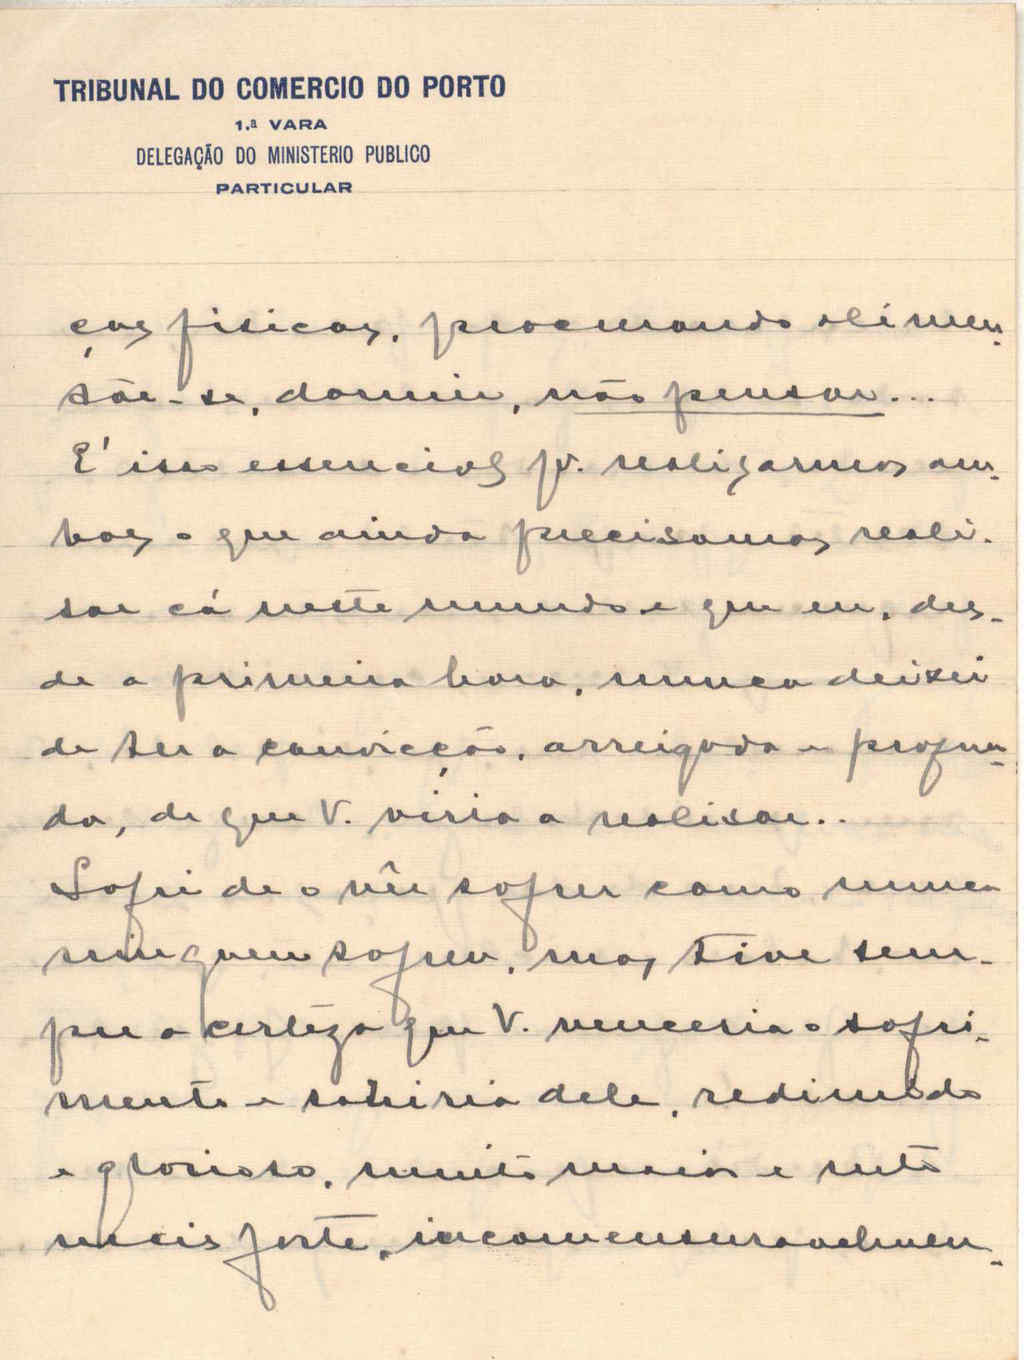 TRIBUNAL DO COMERCIO DO PORTO
1.ª VARA
DELEGAÇÃO DO MINISTERIO PUBLICO
PARTICULAR
ças fisicas, procurando alimen-
tár-se, dormir, não pensar...
E' isso essencial pª. realizarmos am-
bos o que ainda precisamos reali-
sar cá neste mundo e que eu, des-
de a primeira hora, nunca deixei
de ter a convicção, arreigada e profun-
da, de que V. viria a realisar..
Sofri de o vêr sofrer como nunca
ninguem sofreu, mas tive sem-
pre a certeza que V. venceria o sofri-
mento e sahiria dele, redimido
e glorioso, muito maior e mtº
mais forte, incomensuravelmen-